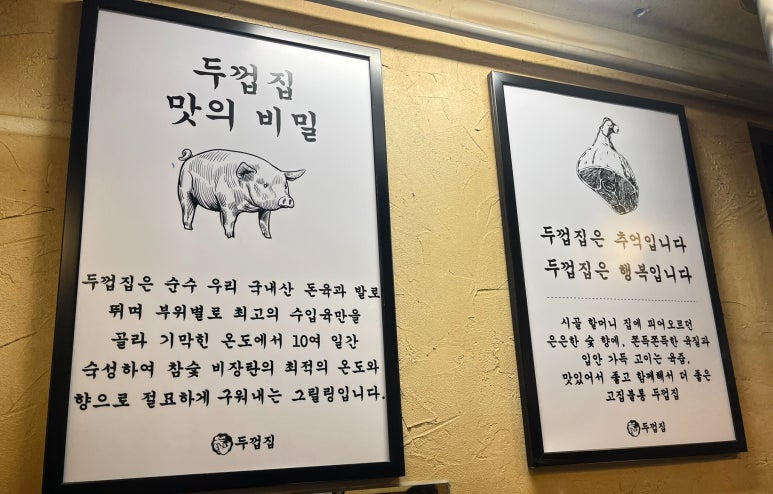 두껍집
맛의 비밀
두껍집은 순수 우리 국내산 돈육과 발로
뛰며 부위별로 최고의 수입육만을
골라 기막힌 온도에서 10여 일간
숙성하여 참숯 비장탄의 최적의 온도와
향으로 절묘하게 구워내는 그릴링입니다.
두껍집
두껍집은 추억입니다
두껍집은 행복입니다
시골 할머니 집에 피어오르던
은은한 숯 향에, 쫀득쫀득한 육질과
입안 가득 고이는 육즙,
맛있어서 좋고 함께해서 더 좋은
고집불통 두껍집
두껍집